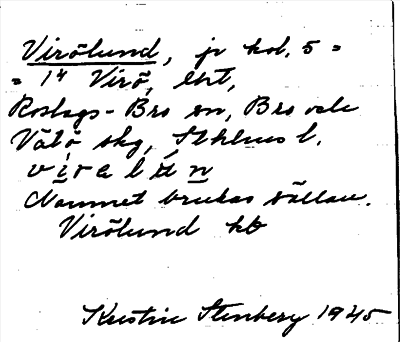 Virölund, jr kol. 5 =
= 1⁴ Virö, lht,
Roslags-Bro sn, Bro o
Vätö skg, Sthlms l.
Namnet brukas sällan.
Virölund kb
Kerstin Stenberg 1945